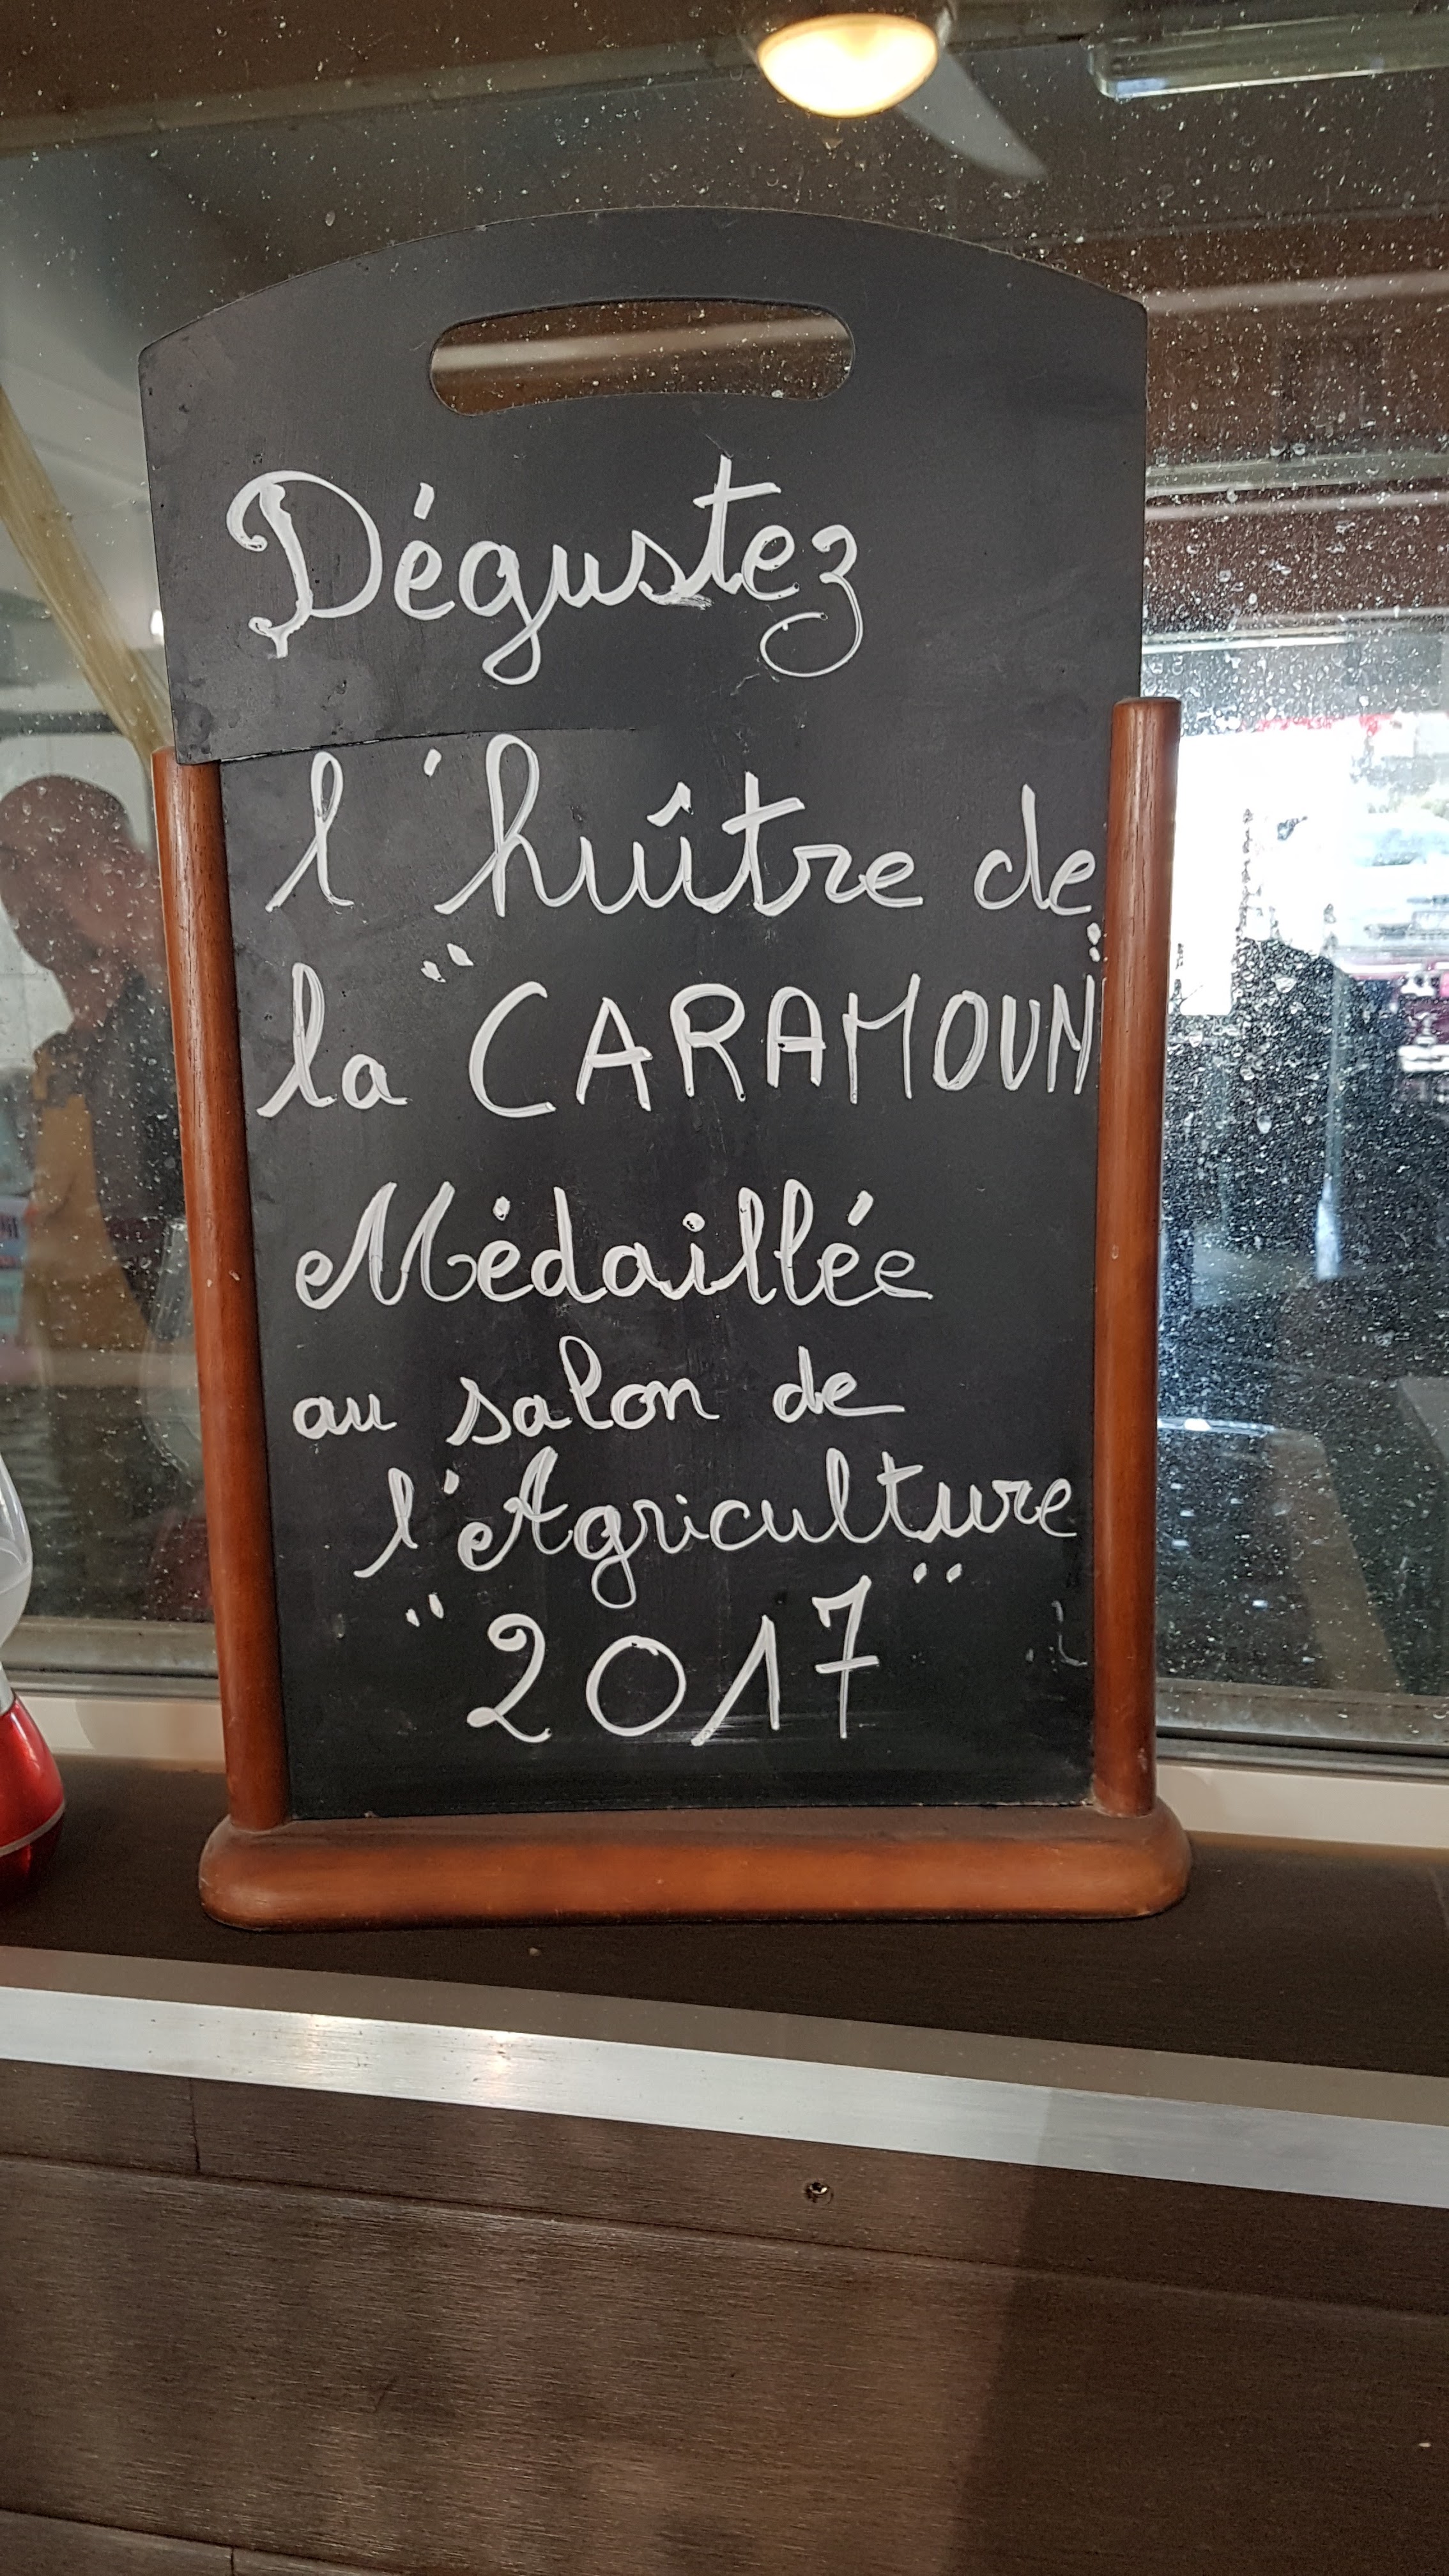 Dégustez
l'huître de
la "CARAMOUN"
Médaillée
au salon de
l'Agriculture
"2017"